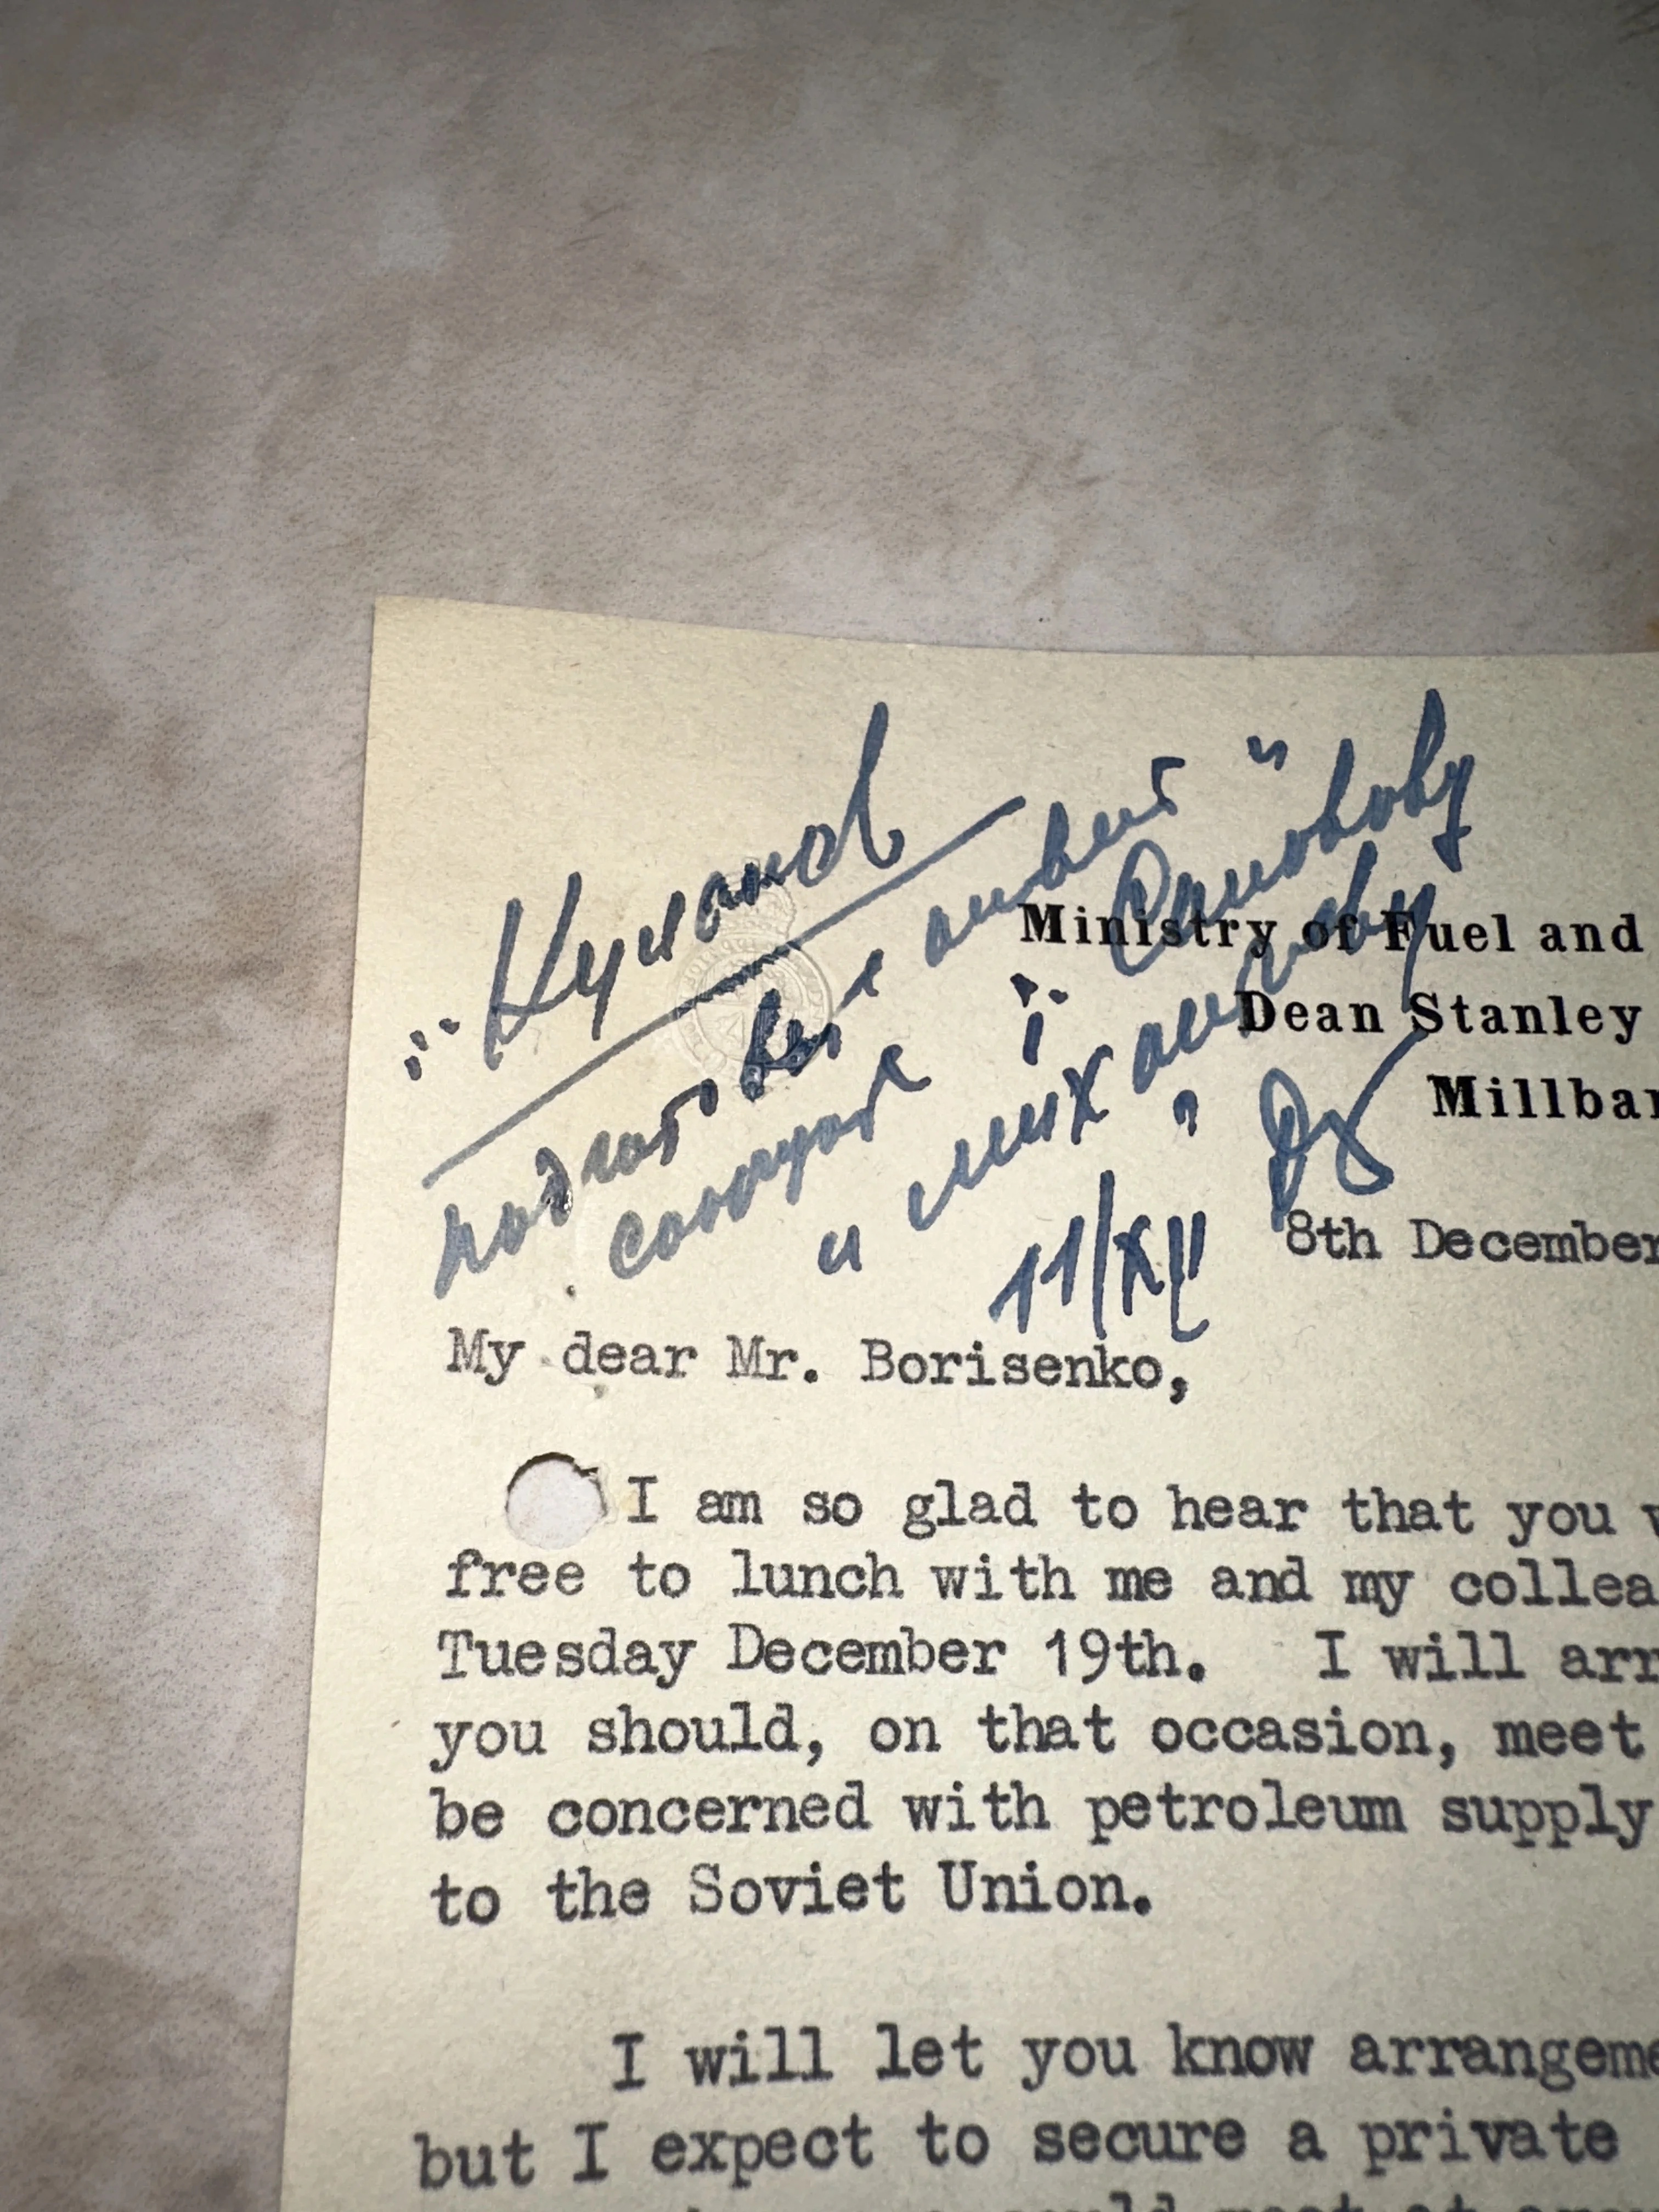 подготовить ответ
и
11/XII
Ministry of Fuel and
Dean Stanley
8th December
My dear Mr. Borisenko,
I am so glad to hear that you
free to lunch with me and my
Tuesday December 19th. I will
you should, on that occasion, meet
be concerned with petroleum supply
to the Soviet Union.
I will let you know
but I expect to secure a private